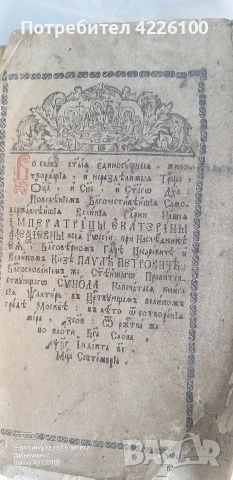 Потребител 4226100
Во славу стыѧ единосущныѧ, живо
творѧщїѧ, и нераздѣлимыѧ Трцы,
Оца, и Сна, и Стагѡ Дха
Повелѣнїемъ Благочестивѣйшїѧ Само
державнѣйшїѧ Великїѧ Гдрни Нашеѧ
ИМПЕРАТРИЦЫ ЕКАТЕРИНЫ
АЛЕѮІЕВНЫ всеѧ Рѡссїи, при Наслѣдникѣ
еѧ, Благовѣрномъ Гдрѣ Цесаревичѣ и
Великомъ Кнзѣ ПАУЛѢ ПЕТРОВИЧѢ:
Благословенїемъ же Стѣйшагѡ Правител
ствующагѡ СУНОДА Напечатасѧ книга
сїѧ Ѱалтирь въ Црствующемъ великомъ
градѣ Москвѣ въ лѣто ѿ сотворенїѧ
мїра, ѿ ржтва же
по плоти Бга Слова
Індїкта
Мца Септемврїа
bazar.bg